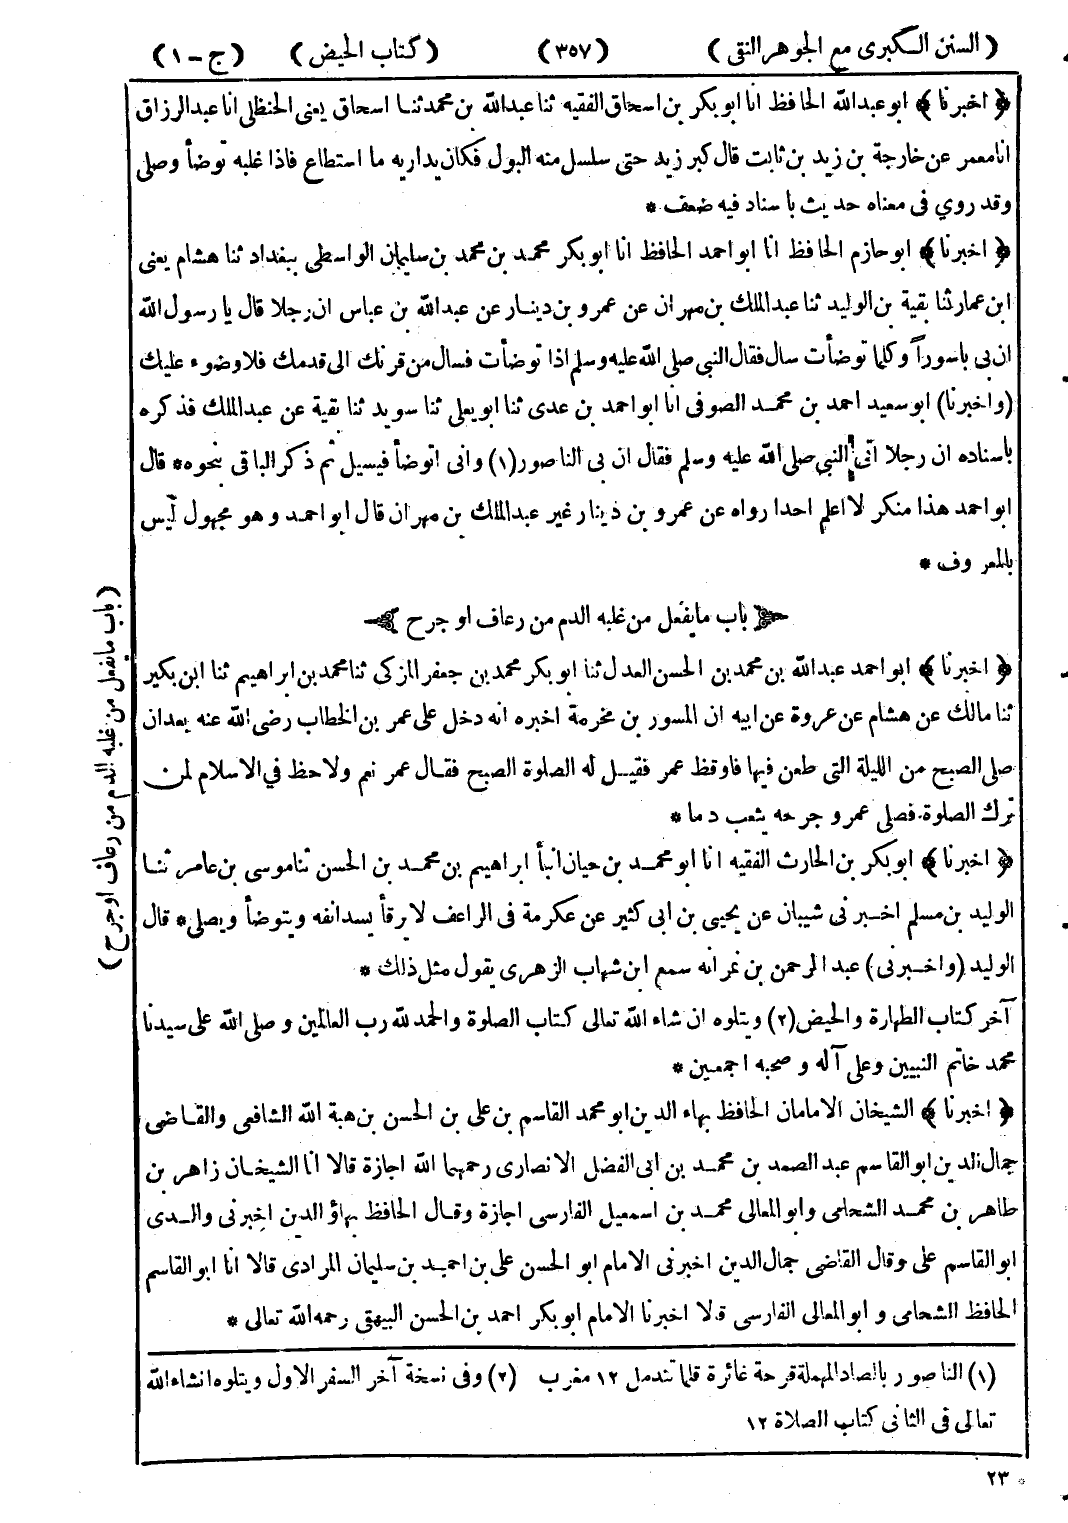 ( السنن الكبرى مع الجوهر النقى ) (٣٥٧) ( كتاب الحيض ) ( ج – ١ )
﴿ اخبرنا ﴾ ابو عبدالله الحافظ انا ابو بكر بن اسحاق الفقيه ثنا عبدالله بن محمد ثنا اسحاق يعنى الحنظلى انا عبد الرزاق
انا معمر عن خارجة بن زيد بن ثابت قال كبر زيد حتى سلسل منه البول فكان يداريه ما استطاع فاذا غلبه توضأ وصلى
وقد روي فى معناه حديث باسناد فيه ضعف *
﴿ اخبرنا ﴾ ابو حازم الحافظ انا ابو احمد الحافظ انا ابو بكر محمد بن محمد بن سليمان الواسطى ببغداد ثنا هشام يعنى
ابن عمار ثنا بقية بن الوليد ثنا عبد الملك بن مهران عن عمرو بن دينار عن عبدالله بن عباس ان رجلا قال يا رسول الله
ان بى باسوراً وكلما توضأت سال فقال النبى صلى الله عليه وسلم اذا توضأت فسال من قرنك الى قدمك فلا وضوء عليك
(واخبرنا) ابو سعيد احمد بن محمد الصوفى انا ابو احمد بن عدى ثنا ابو يعلى ثنا سويد ثنا بقية عن عبد الملك فذكره
باسناده ان رجلا اتى النبي صلى الله عليه وسلم فقال ان بى الناصور(١) وانى اتوضأ فيسيل ثم ذكر الباقى بنحوه * قال
ابو احمد هذا منكر لا اعلم احدا رواه عن عمرو بن دينار غير عبد الملك بن مهران قال ابو احمد وهو مجهول ليس
بالمعروف *
باب ما يفعل من غلبه الدم من رعاف او جرح
( باب ما يفعل من غلبه الدم من رعاف او جرح )
﴿ اخبرنا ﴾ ابو احمد عبدالله بن محمد بن الحسن العدل ثنا ابو بكر محمد بن جعفر المزكى ثنا محمد بن ابراهيم ثنا ابن بكير
ثنا مالك عن هشام عن عروة عن ابيه ان المسور بن مخرمة اخبره انه دخل على عمر بن الخطاب رضى الله عنه بعد ان
صلى الصبح من الليلة التى طعن فيها فاوقظ عمر فقيل له الصلوة الصبح فقال عمر نعم ولا حظ في الاسلام لمن
ترك الصلوة فصلى عمر وجرحه يثعب دما *
﴿ اخبرنا ﴾ ابوبكر بن الحارث الفقيه انا ابو محمد بن حيان انبأ ابراهيم بن محمد بن الحسن ثنا موسى بن عامر ثنا
الوليد بن مسلم اخبرنى شيبان عن يحيى بن ابى كثير عن عكرمة فى الراعف لا يرقأ يسد انفه ويتوضأ ويصلى * قال
الوليد (واخبرنى) عبد الرحمن بن نمر انه سمع ابن شهاب الزهرى يقول مثل ذلك *
آخر كتاب الطهارة والحيض(٢) ويتلوه ان شاء الله تعالى كتاب الصلوة والحمد لله رب العالمين وصلى الله على سيدنا
محمد خاتم النبيين وعلى آله وصحبه اجمعين *
﴿ اخبرنا ﴾ الشيخان الامامان الحافظ بهاء الدين ابو محمد القاسم بن على بن الحسن بن هبة الله الشافعى والقاضى
جمال الدين ابو القاسم عبد الصمد بن محمد بن ابى الفضل الانصارى رحمهما الله اجازة قالا انا الشيخان زاهر بن
طاهر بن محمد الشحامى وابو المعالى محمد بن اسمعيل الفارسى اجازة وقال الحافظ بهاؤ الدين اخبرنى والدى
ابو القاسم على وقال القاضى جمال الدين اخبرنى الامام ابو الحسن على بن احمد بن سليمان المرادى قالا انا ابو القاسم
الحافظ الشحامى و ابو المعالى الفارسى قالا اخبرنا الامام ابو بكر احمد بن الحسن البيهقى رحمه الله تعالى *
(١) الناصور بالصاد المهملة قرحة غائرة قلما تندمل ١٢ مغرب (٢) وفى نسخة آخر السفر الاول ويتلوه انشاء الله
تعالى فى الثانى كتاب الصلاة ١٢
٢٣